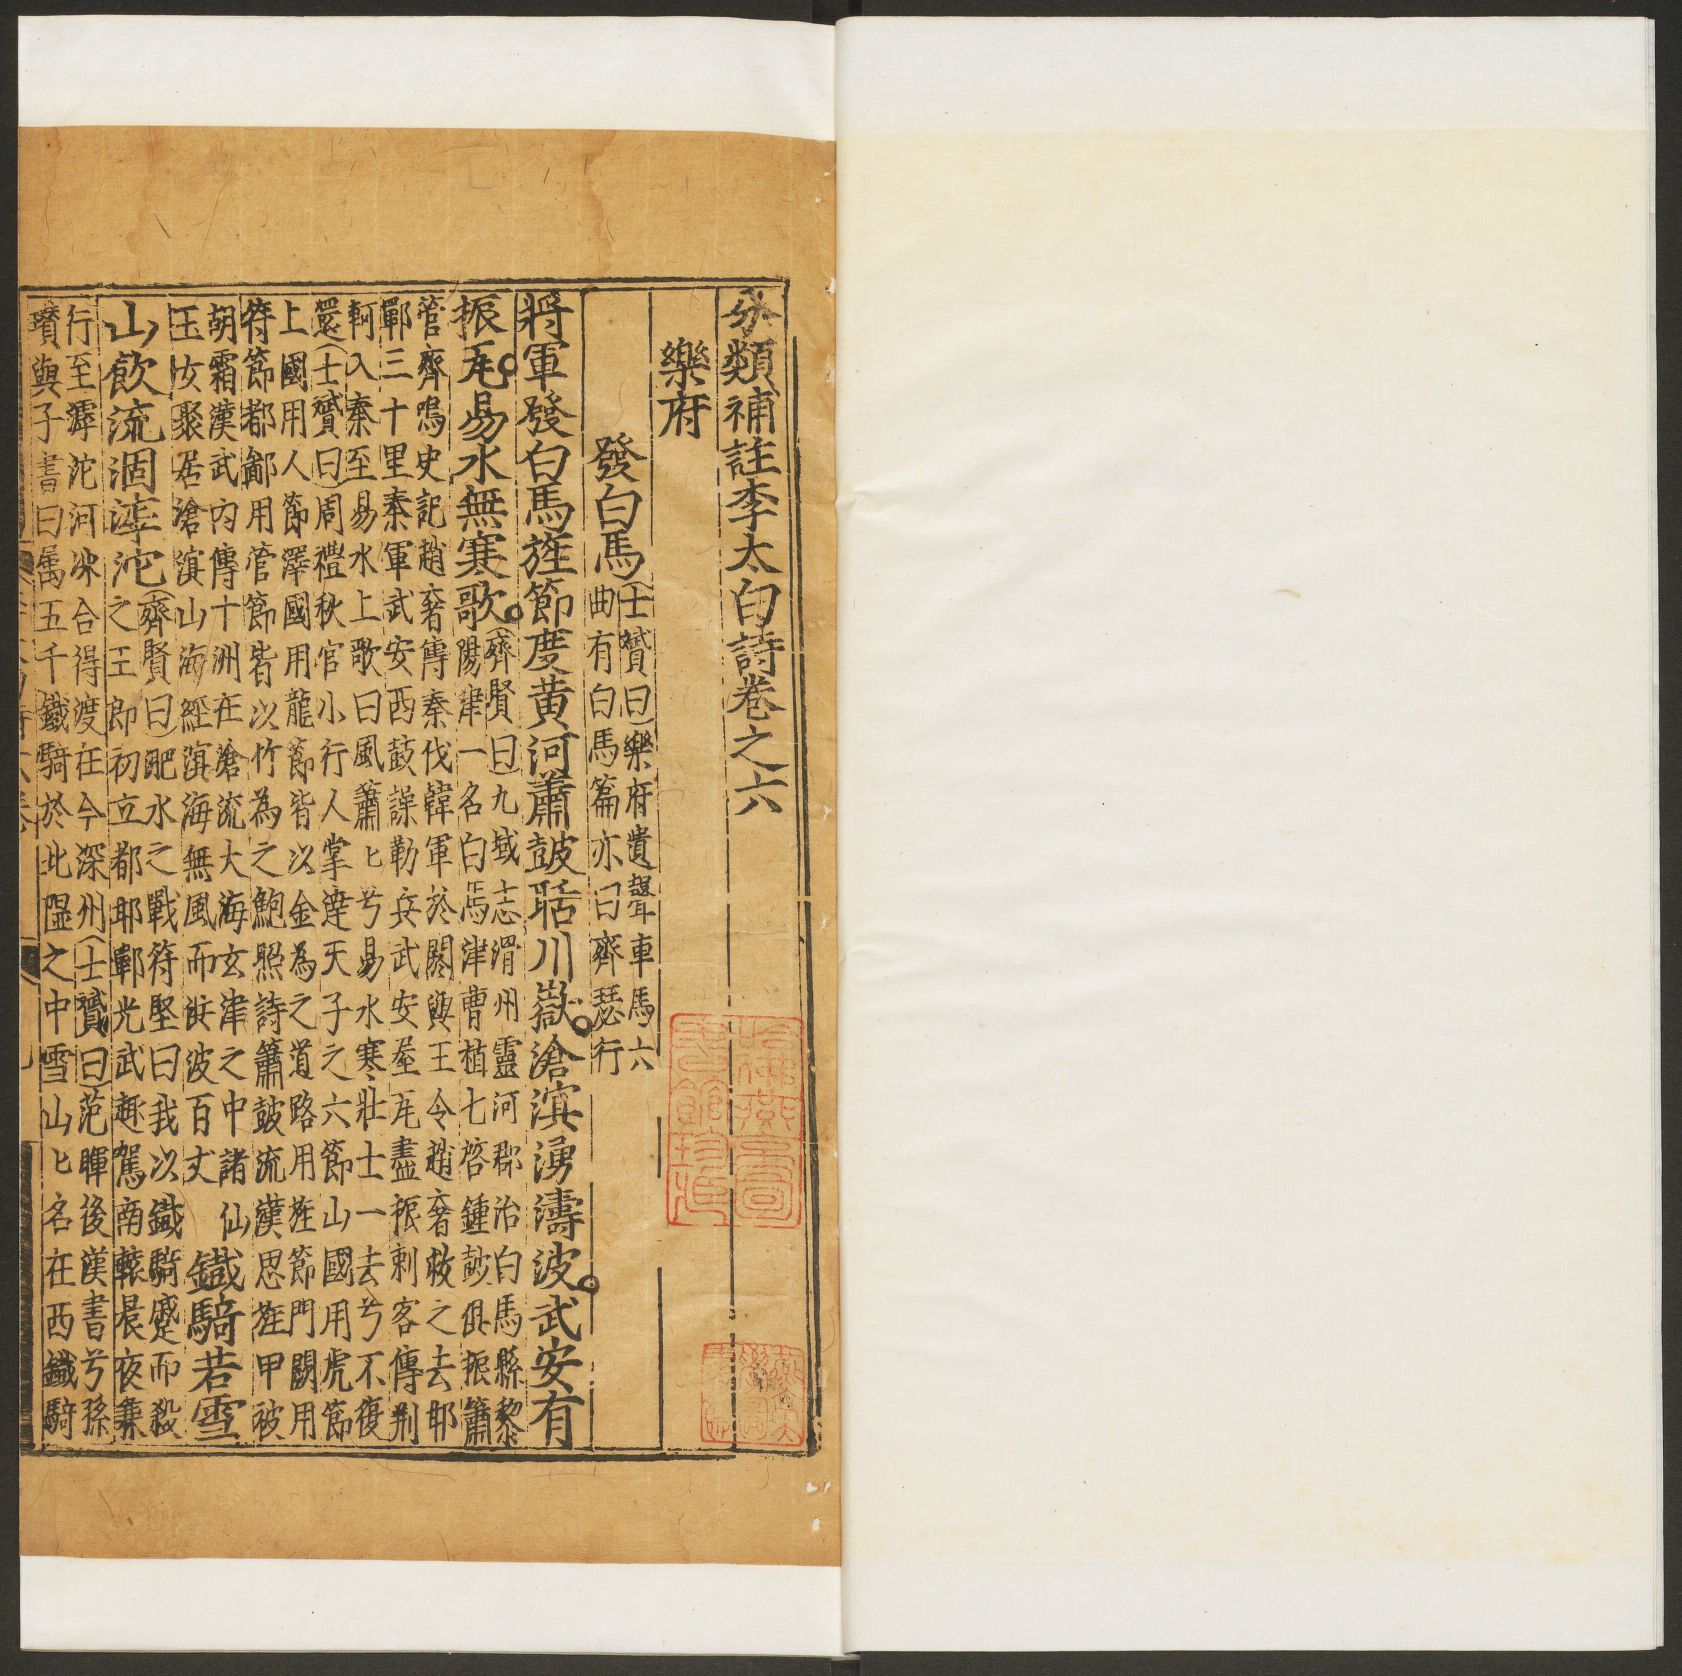 分類補註李太白詩卷之六
樂府
發白馬(士贇曰)樂府遺聲車馬六
曲有白馬篇亦曰齊瑟行
將軍發白馬旌節度黃河簫皷聒川嶽滄溟湧濤波武安有
振瓦易水無寒歌(齊賢曰)九域志滑州靈河郡治白馬縣黎
陽津一名白馬津曹植七啓鍾皷俱振簫
管齊鳴史記趙奢傳秦伐韓軍於閼與王令趙奢救之去邯
鄲三十里秦軍武安西鼓譟勒兵武安屋瓦盡振刺客傳荆
軻入秦至易水上歌曰風蕭匕兮易水寒壯士一去兮不復
還(士贇曰)周禮秋官小行人掌達天子之六節山國用虎節
上國用人節澤國用龍節皆以金為之道路用旌節門關用
符節都鄙用管節皆以竹為之鮑照詩簫皷流漢思旌甲被
朝霜漢武內傳十洲在滄流大海玄津之中諸仙
玉女聚居滄溟山海經溟海無風而洪波百丈
鐵騎若雪
山飲流涸滹沱(齊賢曰)淝水之戰符堅曰我以鐵騎蹙而殺
之王郎初立都邯鄲光武趣駕南轅晨夜兼
行至滹沱河冰合得渡在今深州(士贇曰)范曄後漢書公孫
瓚與子書曰厲五千鐵騎於北隰之中雪山匕名在西鐵騎